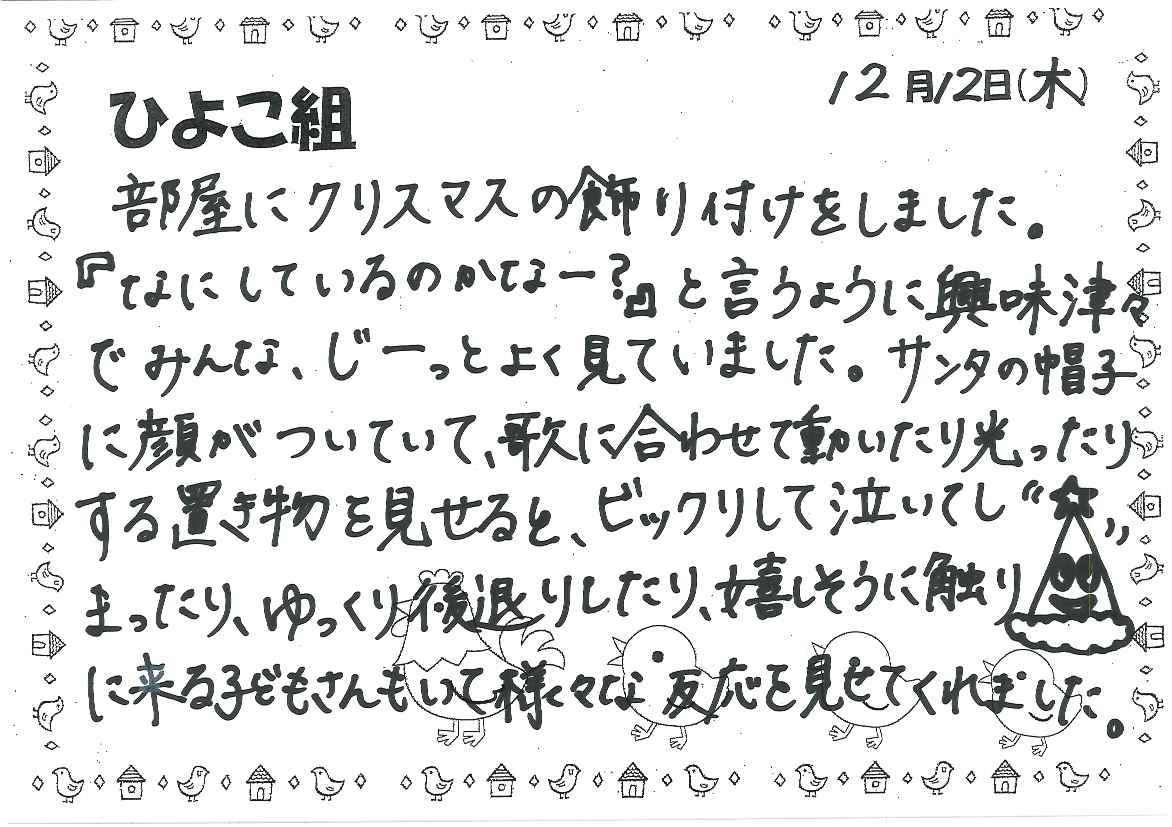 12月12日(木)
ひよこ組
部屋にクリスマスの飾り付けをしました。
『なにしているのかなー?』と言うように興味津々
でみんな、じーっとよく見ていました。サンタの帽子
に顔がついていて、歌に合わせて動いたり光ったり
する置き物を見せると、ビックリして泣いてし
まったり、ゆっくり後退りしたり、嬉しそうに触り
に来る子どもさんもいて様々な反応を見せてくれました。